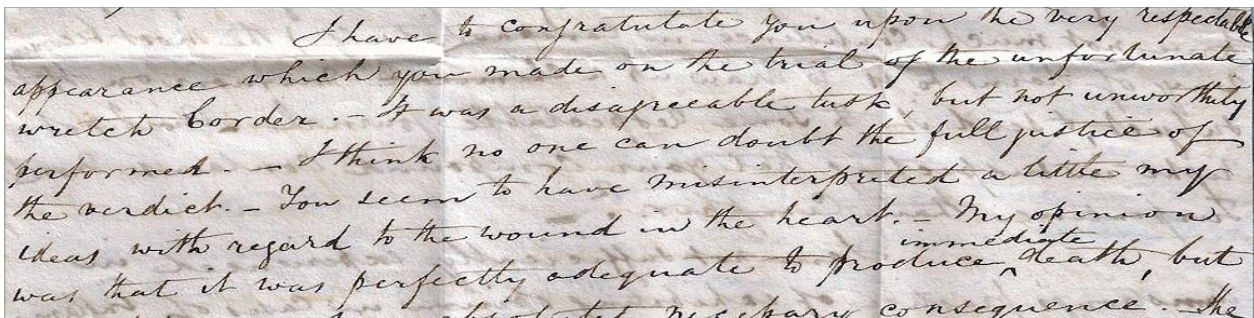 I have to congratulate you upon the very respectable
appearance which you made on the trial of the unfortunate
wretch Corder. – It was a disagreeable task, but not unworthily
performed. – I think no one can doubt the full justice of
the verdict. – You seem to have misinterpreted a little my
ideas with regard to the wound in the heart. – My opinion
immediate
was that it was perfectly adequate to produce ^ death, but
absolutel necessary consequence. – The